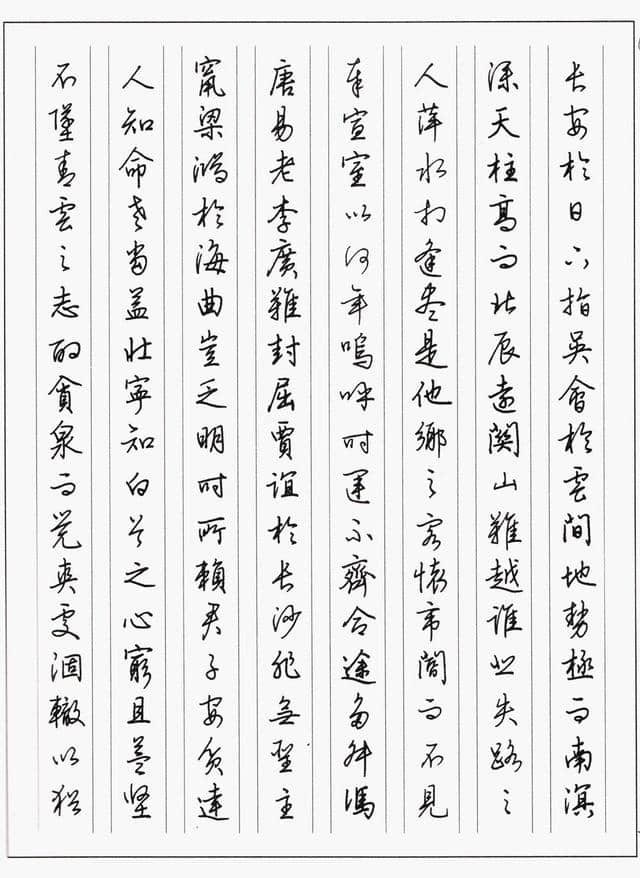 長安於日下指吳會於雲間地勢極而南溟
深天柱高而北辰遠關山難越誰悲失路之
人萍水相逢盡是他鄉之客懷帝閽而不見
奉宣室以何年嗚呼時運不齊命途多舛馮
唐易老李廣難封屈賈誼於長沙非無聖主
竄梁鴻於海曲豈乏明時所賴君子安貧達
人知命老當益壯寧知白首之心窮且益堅
不墜青雲之志酌貪泉而覺爽處涸轍以猶